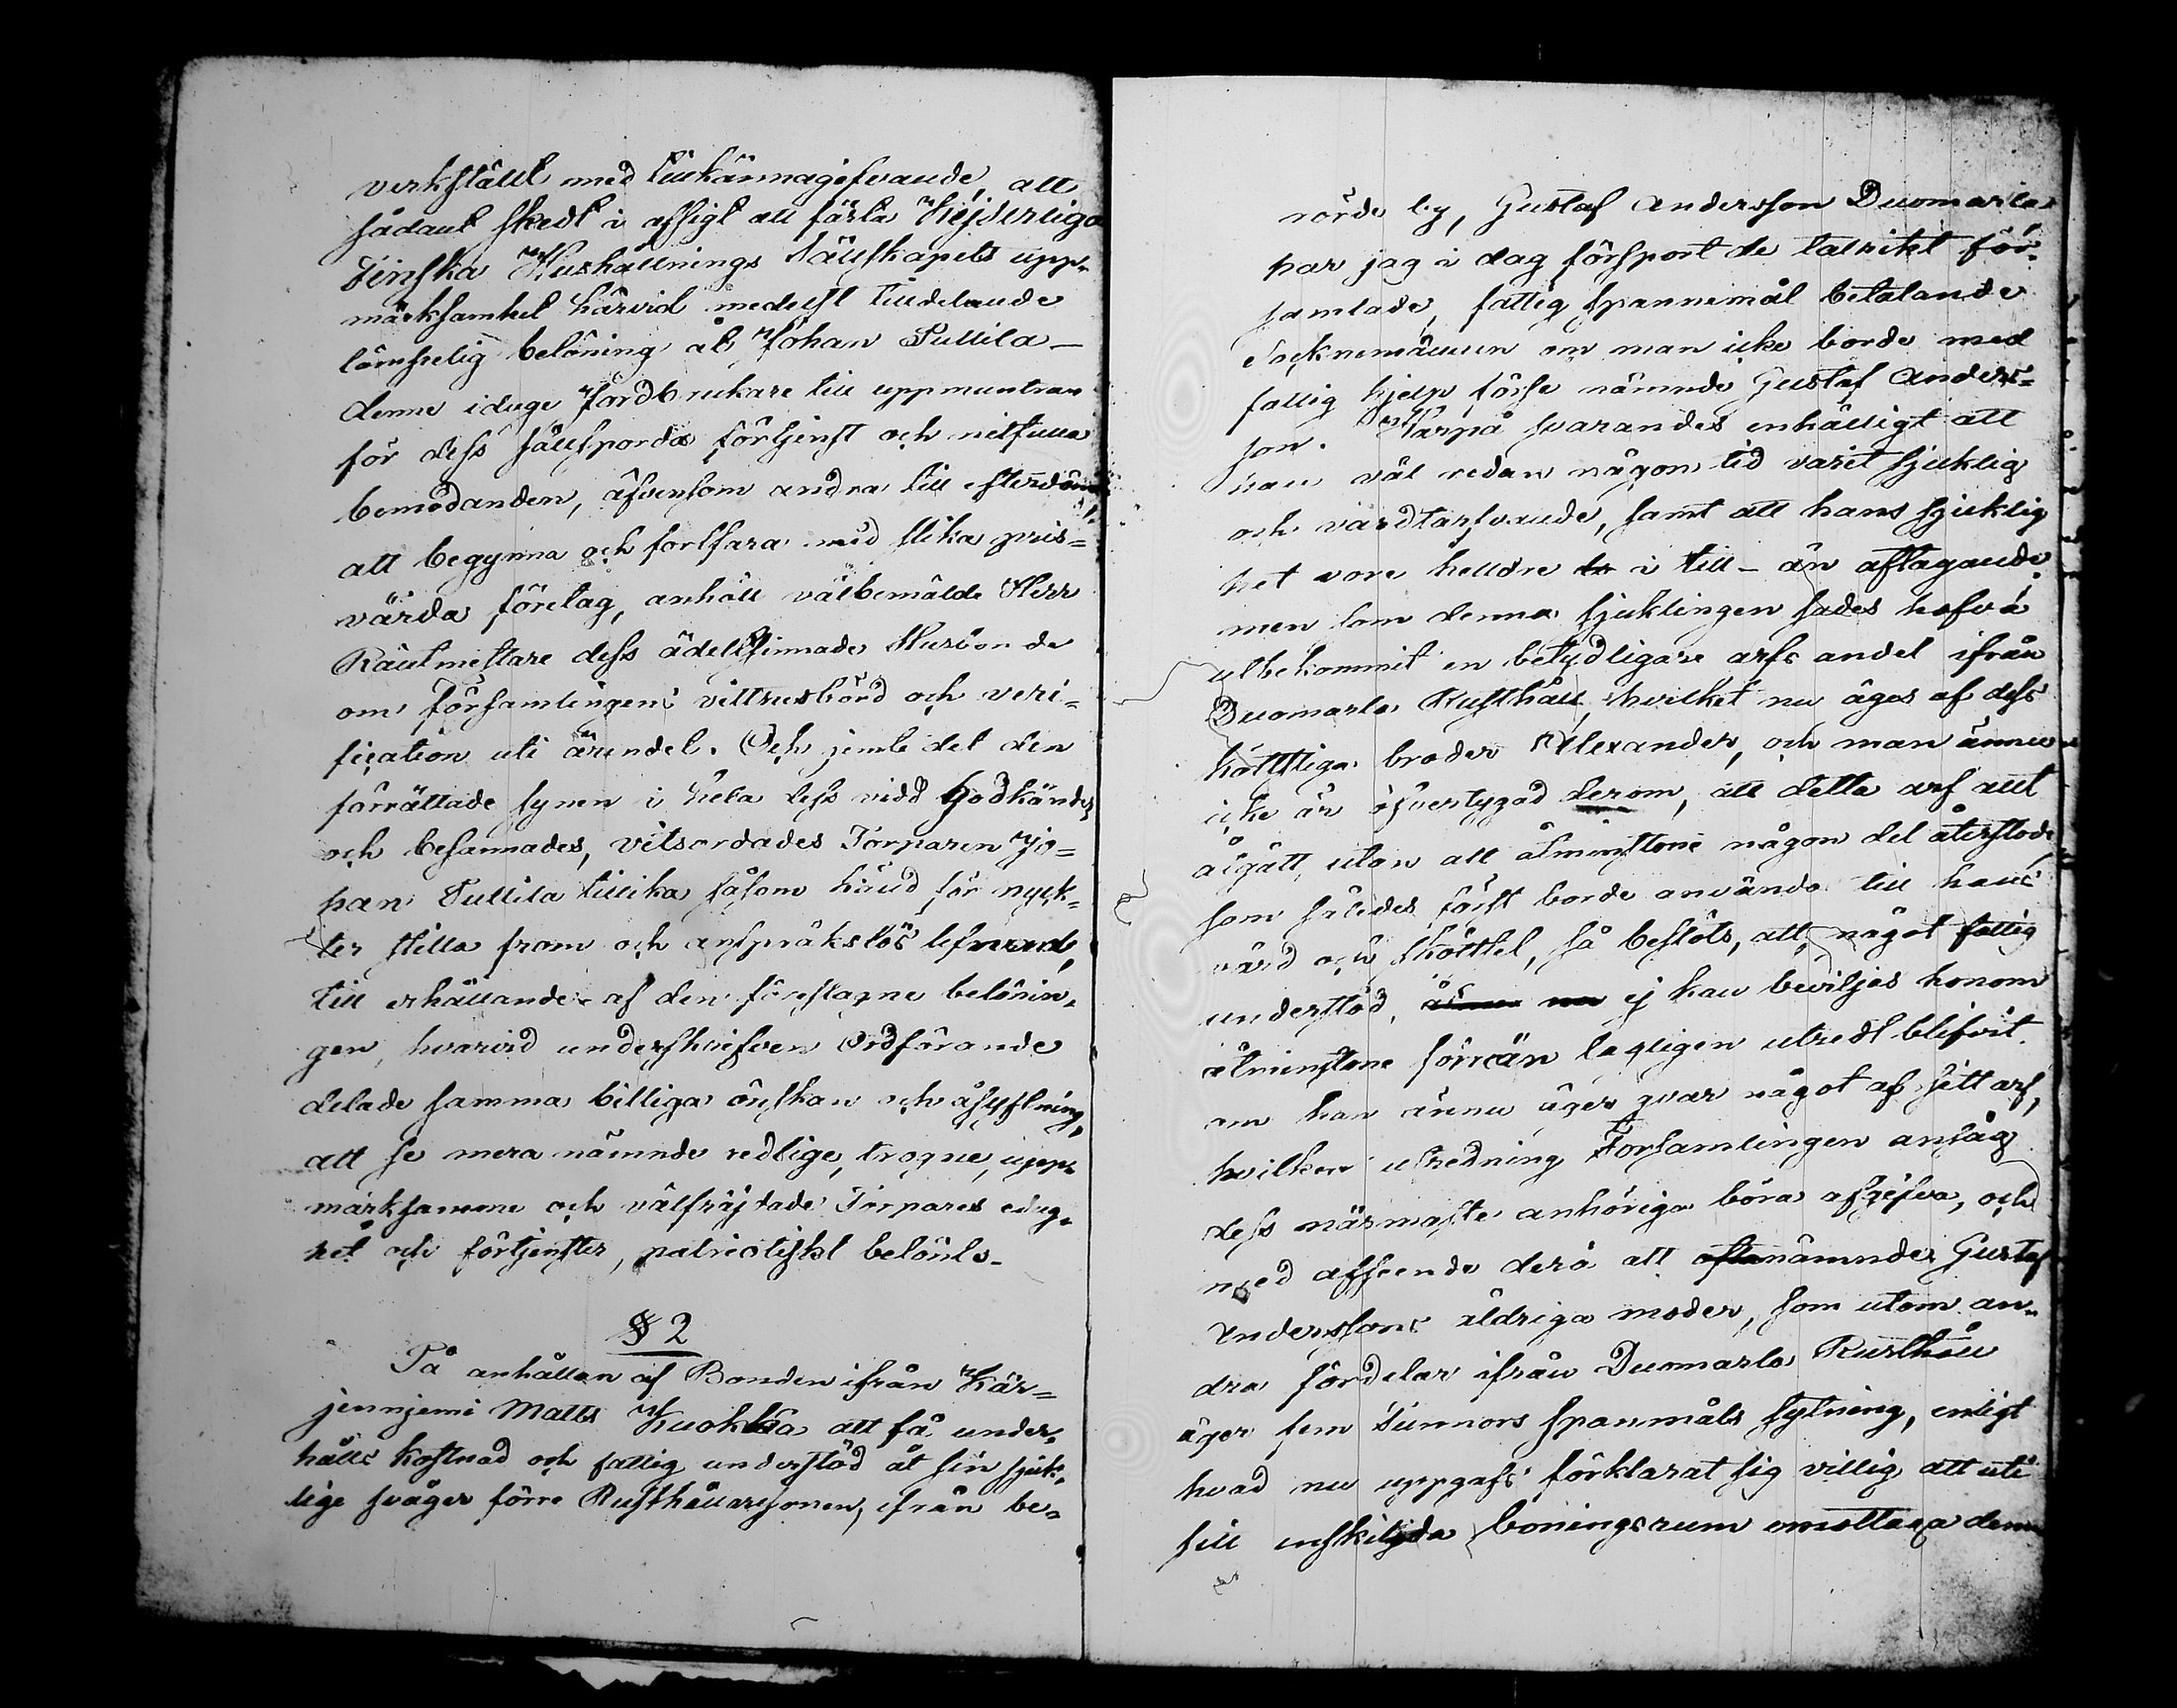 verkstält med tillkännagifvande, att
sådant skedt i afsigt att fästa Kejserliga
Finska Hushållnings Sällskapets upp-
märksamhet härvid medelst tilldelande
lämpelig belöning åt Johan Pullila -
denne idoge Jordbrukare till uppmuntran
för dess sällsporda förtjenst och nitfulla
bemödanden, äfvensom andra till efterdöme
att begynna och fortfara med slika pris-
värda företag, anhöll välbemälde Herr
Räntmestare dess ädelsinnade Husbonde
om Församlingens vittnesbörd och veri-
fication uti ärendet. Och jemte det den
förrättade synen i hela dess vidd godkändes
och besannades, vitsordades Torparen Jo-
han Pullila tillika såsom känd för nyck-
ter stilla from och anspråkslös lefnad,
till erhållande af den föreslagne belönin-
gen, hvarvid underskrifven Ordförande
delade samma billiga önskan och åsyftning,
att se mera nämnde redlige, trogne, upp-
märksamme och välfräjdade Torpares idog-
het och förtjenster, patriotiskt belönts.
§ 2
På anhållan af Bonden ifrån Kär-
jenniemi Matts Kuokka att få under-
hålls kostnad och fattig understöd åt sin sjuk-
lige svåger förre Rusthållaresonen, ifrån be-
rörde by, Gustaf Andersson Duomarla
har jag i dag försport de talrikt för-
samlade, fattig spannemål betalande
Socknemännen om man icke borde med
fattig hjelp förse nämnde Gustaf Anders-
son. Härpå svarandes enhälligt att
han väl redan någon tid varit sjuklig
och vårdtarfvande, samt att hans sjuklig
het vore helldre i till- än aftagande,
men som denna sjuklingen sades hafva
utbekommit en betydligare arfs andel ifrån
Duomarla Rusthåll, hvilket nu äges af dess
köttsliga broder Alexander, och man ännu
icke är öfvertygad derom, att detta arf allt
åtgått, utan att åtminstone någon del återstode,
som således först borde användas till hans
vård och skötsel, så beslöts, att något fattig
understöd, ej kan beviljas honom
åtminstone förrän lagligen utredt blifvit
om han ännu äger qvar något af sitt arf,
hvilken utredning Församlingen ansåg
dess närmaste anhöriga böra afgifva, och
med afseende derå att oftanämnde Gustaf
Anderssons åldriga moder, som utom an-
dra fördelar ifrån Duomarla Rusthåll
äger fem Tunnors spanmåls sytning, enligt
hvad nu uppgafs förklarat sig villig att uti
sitt enskilda boningsrum emottaga denne